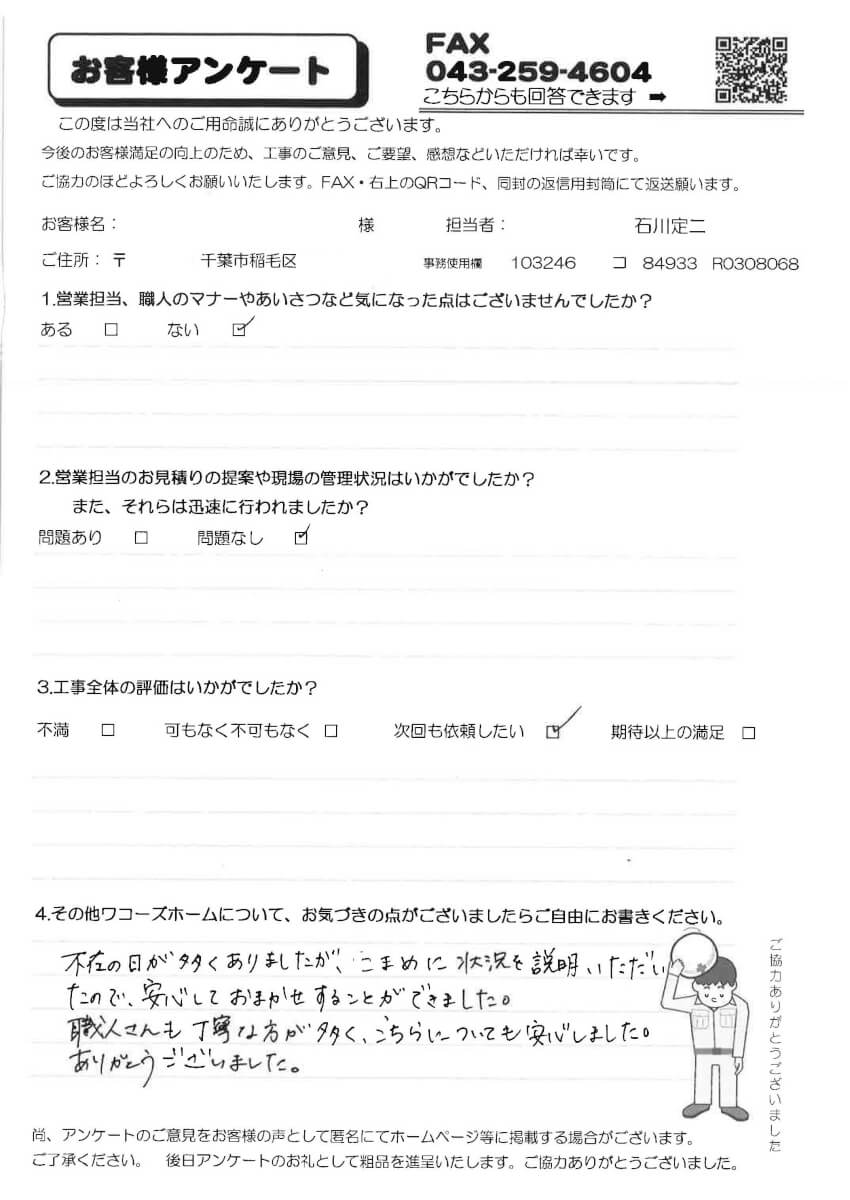 お客様アンケート
FAX
043-259-4604
こちらからも回答できます ➡
この度は当社へのご用命誠にありがとうございます。
今後のお客様満足の向上のため、工事のご意見、ご要望、感想などいただければ幸いです。
ご協力のほどよろしくお願いいたします。FAX・右上のQRコード、同封の返信用封筒にて返送願います。
お客様名： 様 担当者： 石川定二
ご住所：〒 千葉市稲毛区 事務使用欄 103246 コ 84933 R0308068
1.営業担当、職人のマナーやあいさつなど気になった点はございませんでしたか？
ある □ ない ☑
2.営業担当のお見積りの提案や現場の管理状況はいかがでしたか？
また、それらは迅速に行われましたか？
問題あり □ 問題なし ☑
3.工事全体の評価はいかがでしたか？
不満 □ 可もなく不可もなく □ 次回も依頼したい ☑ 期待以上の満足 □
4.その他ワコーズホームについて、お気づきの点がございましたらご自由にお書きください。
不在の日が多くありましたが、こまめに状況を説明いただい
たので、安心しておまかせすることができました。
職人さんも丁寧な方が多く、こちらについても安心しました。
ありがとうございました。
ご協力ありがとうございました
尚、アンケートのご意見をお客様の声として匿名にてホームページ等に掲載する場合がございます。
ご了承ください。 後日アンケートのお礼として粗品を進呈いたします。ご協力ありがとうございました。